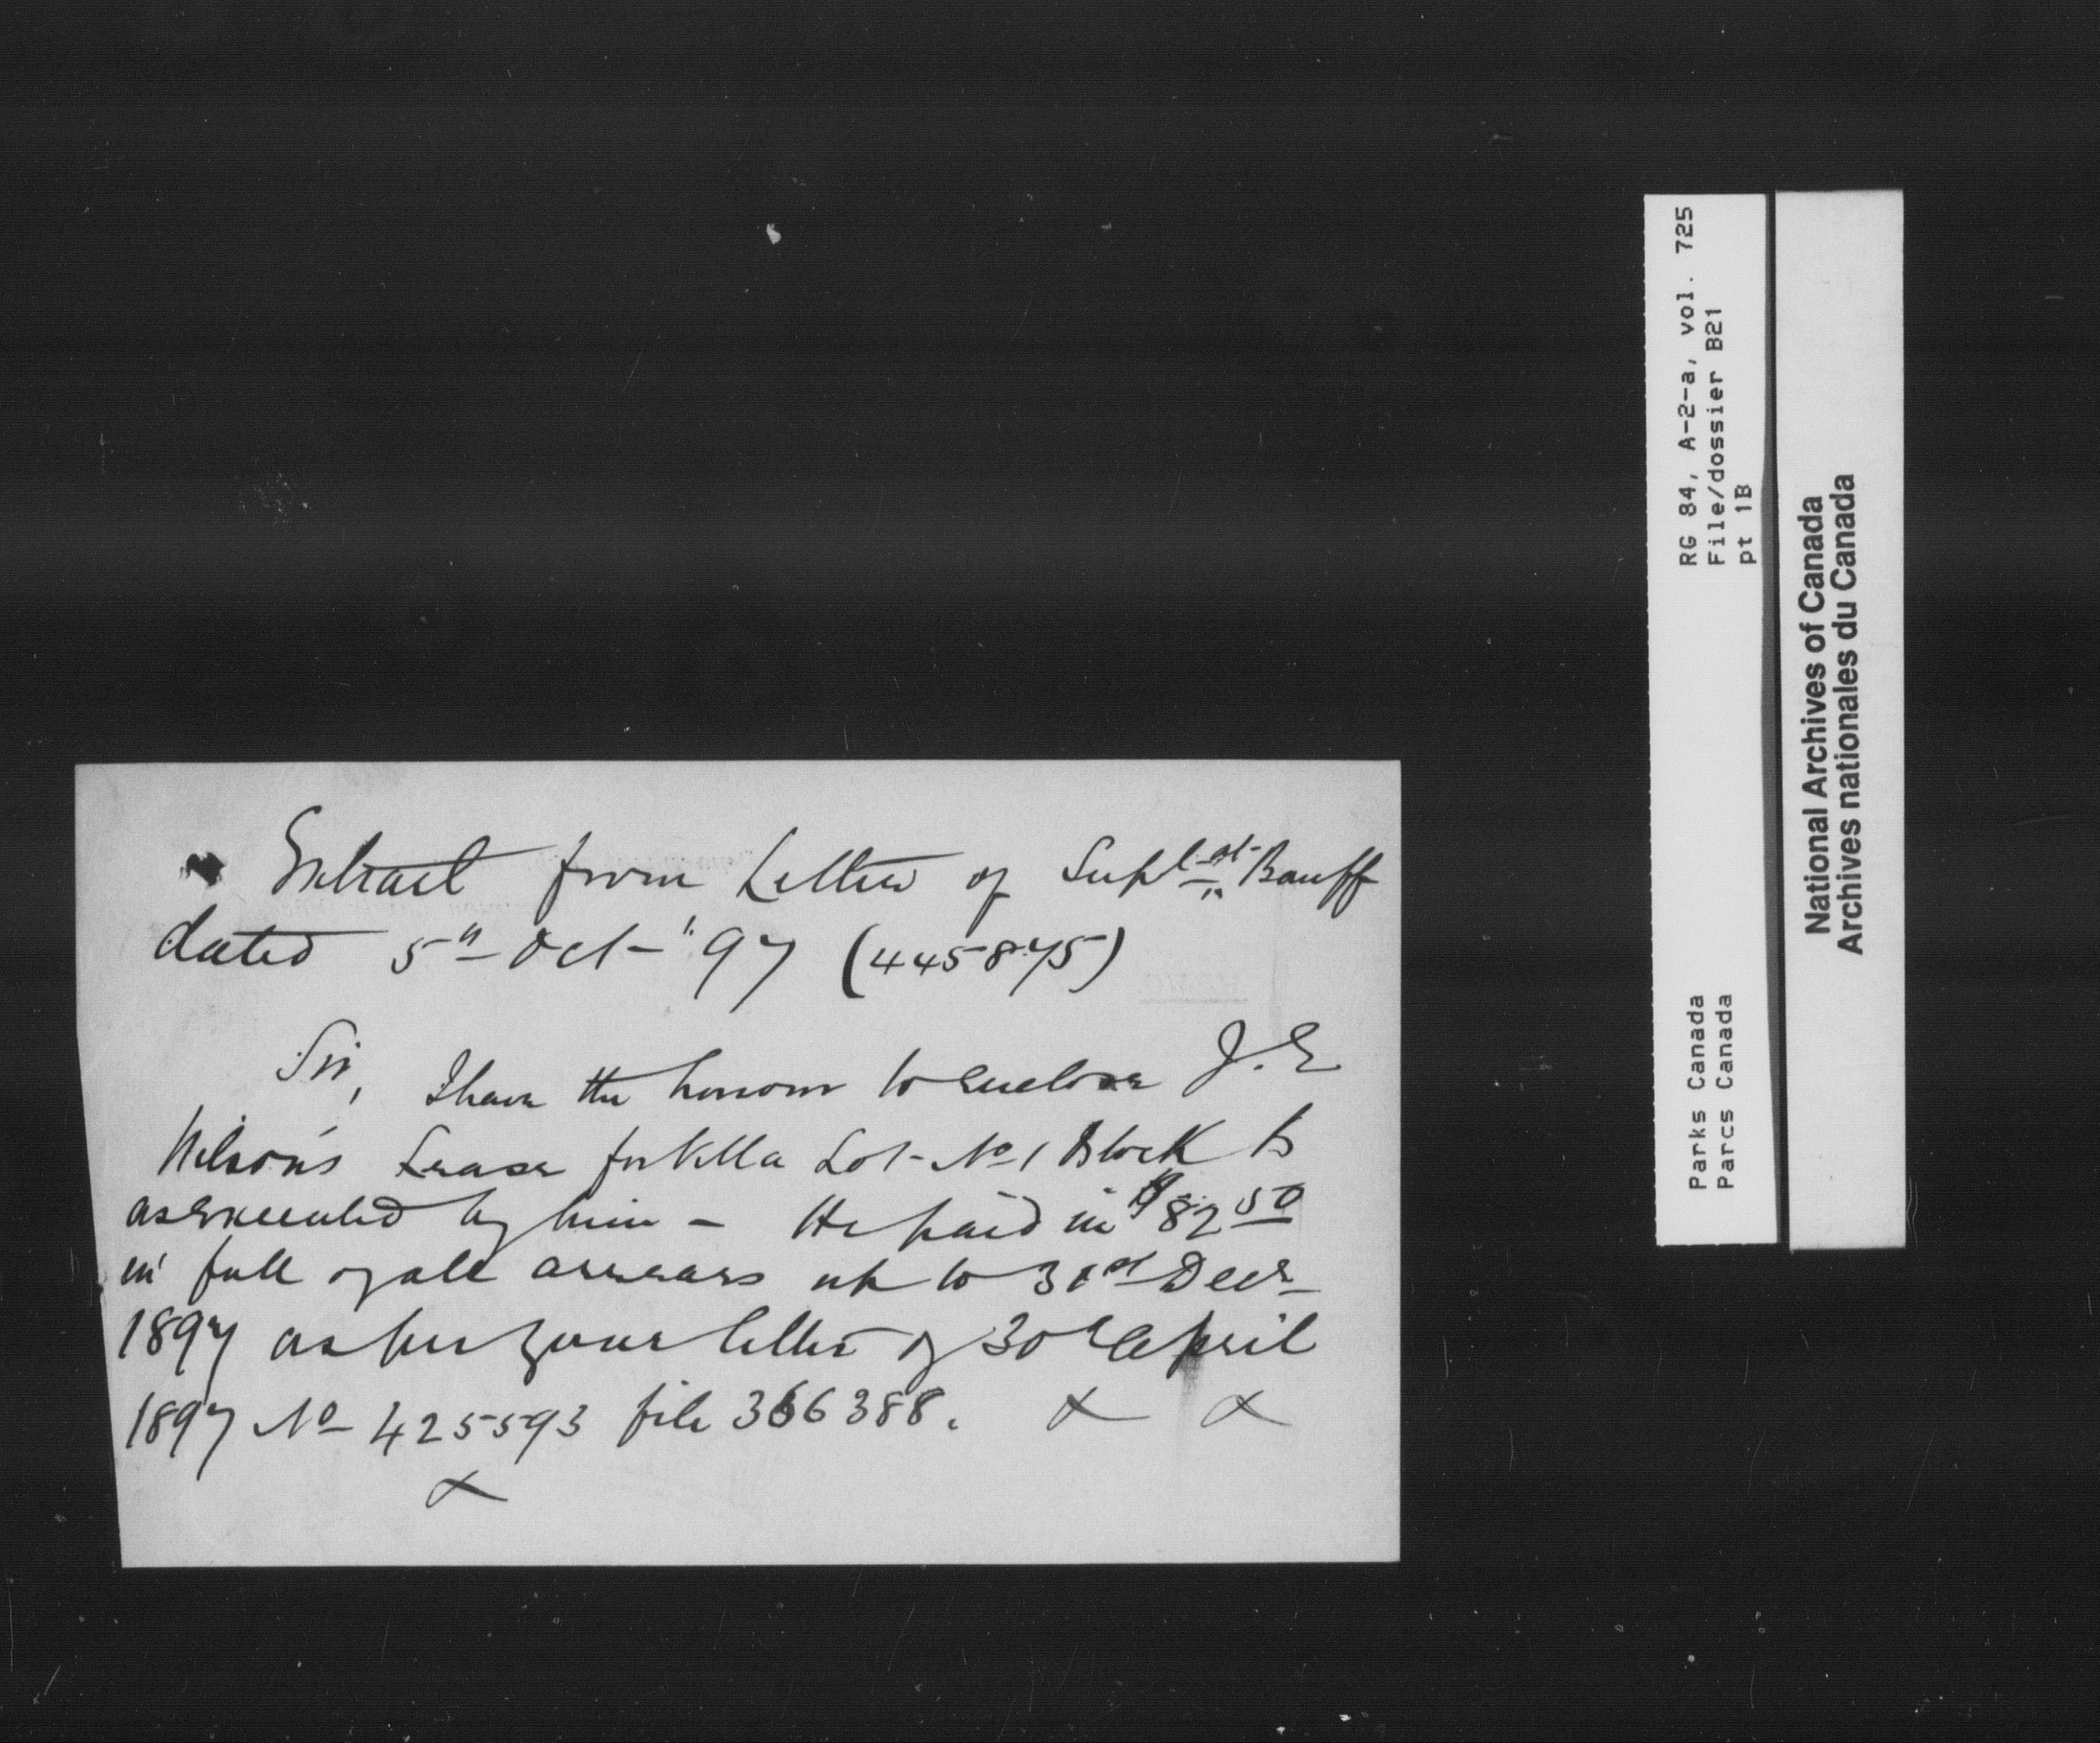 Extract from Letter of Supt at Banff
dated 5th Oct '97 (445875)
Sir, I have the honour to enclose J. E
Wilson's Lease for Villa Lot No 1 Block B
as executed by him - He paid in $82 50
in full of all arrears up to 31st Decr
1897 as per your letter of 30th April
1897 No 425593 file 366388. x x
x
RG 84, A-2-a, vol. 725
File/dossier B21
pt 1B
Parks Canada
Parcs Canada
National Archives of Canada
Archives nationales du Canada